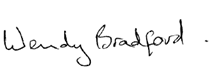 Wendy Bradford.